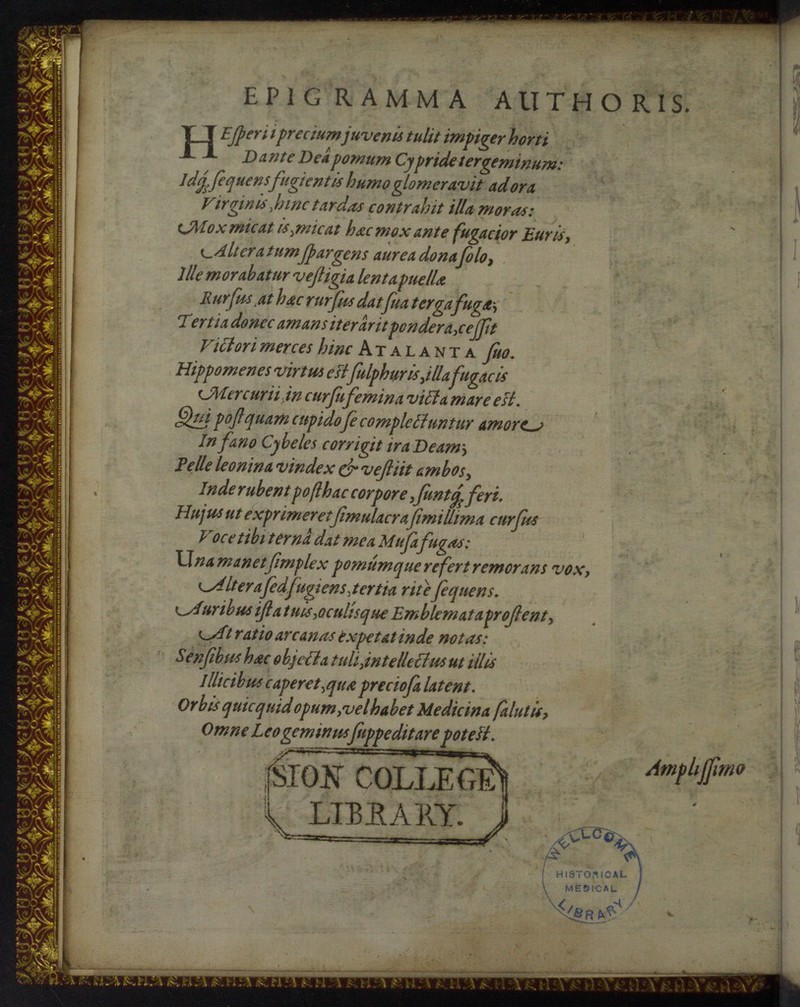 EPIGRAMMA AUTHORIS.
HEſperii i precium juvenis tulit impiger horti
Dante Deâ pomum Cypride tergeminum:
Idq́; ſequens fugientis humo glomeravit ad ora
Virginis, hinc tardas contrahit illa moras:
Mox micat is, micat hæc mox ante fugacior Euris,
Alteratum ſpargens aurea dona ſolo,
Ille morabatur veſtigia lenta puellæ
Rurſus, at hæc rurſus dat ſua terga fugæ;
Tertia donec amans iterârit pondera, ceſſit
Victori merces hinc ATALANTA ſuo.
Hippomenes virtus eſt ſulphuris, illa fugacis
Mercurii, in curſu femina victa mare eſt.
Qui poſtquam cupido ſe complectuntur amore
In fano Cybeles corrigit ira Deam;
Pelle leonina vindex & veſtiit ambos,
Inde rubent poſthac corpore, ſuntq́; feri.
Hujus ut exprimeret ſimulacra ſimillima curſus
Voce tibi ternâ dat mea Muſa fugas:
Una manet ſimplex pomúmque refert remorans vox,
Altera ſed fugiens, tertia ritè ſequens.
Auribus iſta tuis, oculísque Emblemata proſtent,
At ratio arcanas expetat inde notas:
Senſibus hæc objecta tuli, intellectus ut illis
Illicibus caperet, quæ precioſa latent.
Orbis quicquid opum, vel habet Medicina ſalutis,
Omne Leo geminus ſuppeditare poteſt.
Ampliſſimo
SION COLLEGE
LIBRARY.
WELLCOME
HISTORICAL
MEDICAL
LIBRARY